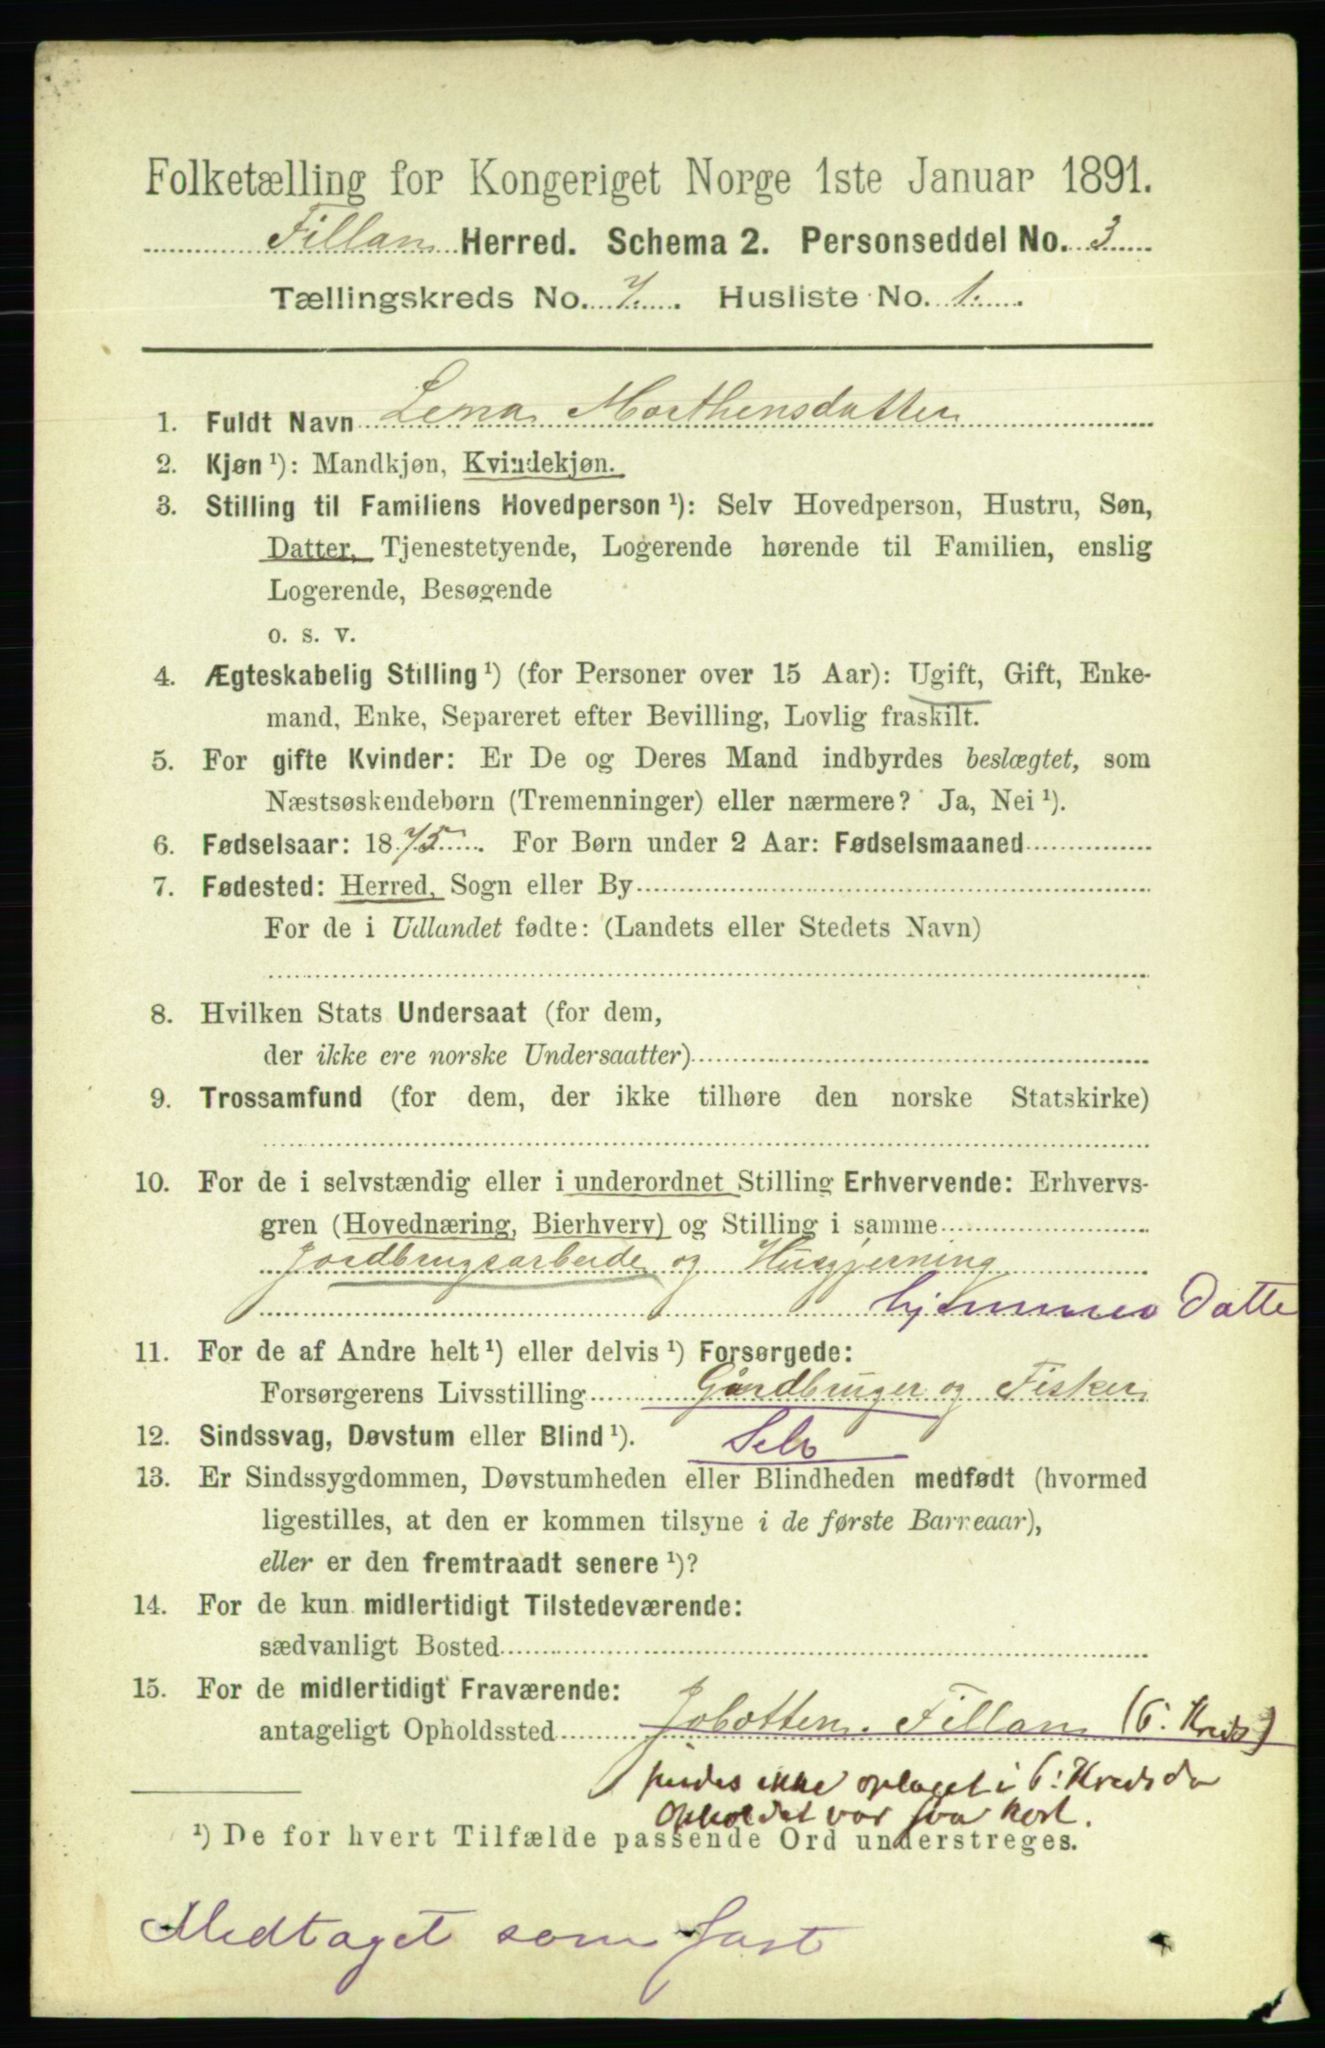 Folketælling for Kongeriget Norge 1ste Januar 1891.
Fillan Herred. Schema 2. Personseddel No. 3
Tællingskreds No. 7. Husliste No. 1.
1. Fuldt Navn Lena Morthensdatter
2. Kjøn ¹): Mandkjøn, Kvindekjøn.
3. Stilling til Familiens Hovedperson ¹): Selv Hovedperson, Hustru, Søn,
Datter, Tjenestetyende, Logerende hørende til Familien, enslig
Logerende, Besøgende
o. s. v.
4. Ægteskabelig Stilling ¹) (for Personer over 15 Aar): Ugift, Gift, Enke-
mand, Enke, Separeret efter Bevilling, Lovlig fraskilt.
5. For gifte Kvinder: Er De og Deres Mand indbyrdes beslægtet, som
Næstsøskendebørn (Tremenninger) eller nærmere? Ja, Nei ¹).
6. Fødselsaar: 1875. For Børn under 2 Aar: Fødselsmaaned
7. Fødested: Herred, Sogn eller By
For de i Udlandet fødte: (Landets eller Stedets Navn)
8. Hvilken Stats Undersaat (for dem,
der ikke ere norske Undersaatter)
9. Trossamfund (for dem, der ikke tilhøre den norske Statskirke)
10. For de i selvstændig eller i underordnet Stilling Erhvervende: Erhvervs-
gren (Hovednæring, Bierhverv) og Stilling i samme
Jordbrugsarbeide og Husgjerning
hjemmev Datte
11. For de af Andre helt ¹) eller delvis ¹) Forsørgede:
Forsørgerens Livsstilling Gårdbruger og Fisker
12. Sindssvag, Døvstum eller Blind ¹). Selv
13. Er Sindssygdommen, Døvstumheden eller Blindheden medfødt (hvormed
ligestilles, at den er kommen tilsyne i de første Barneaar),
eller er den fremtraadt senere ¹)?
14. For de kun midlertidigt Tilstedeværende:
sædvanligt Bosted
15. For de midlertidigt Fraværende:
antageligt Opholdssted Jobotten. Fillan (6. Kreds)
findes ikke optaget i 6: Kreds da
Opholdet var saa kort.
¹) De for hvert Tilfælde passende Ord understreges.
Medtaget som fast